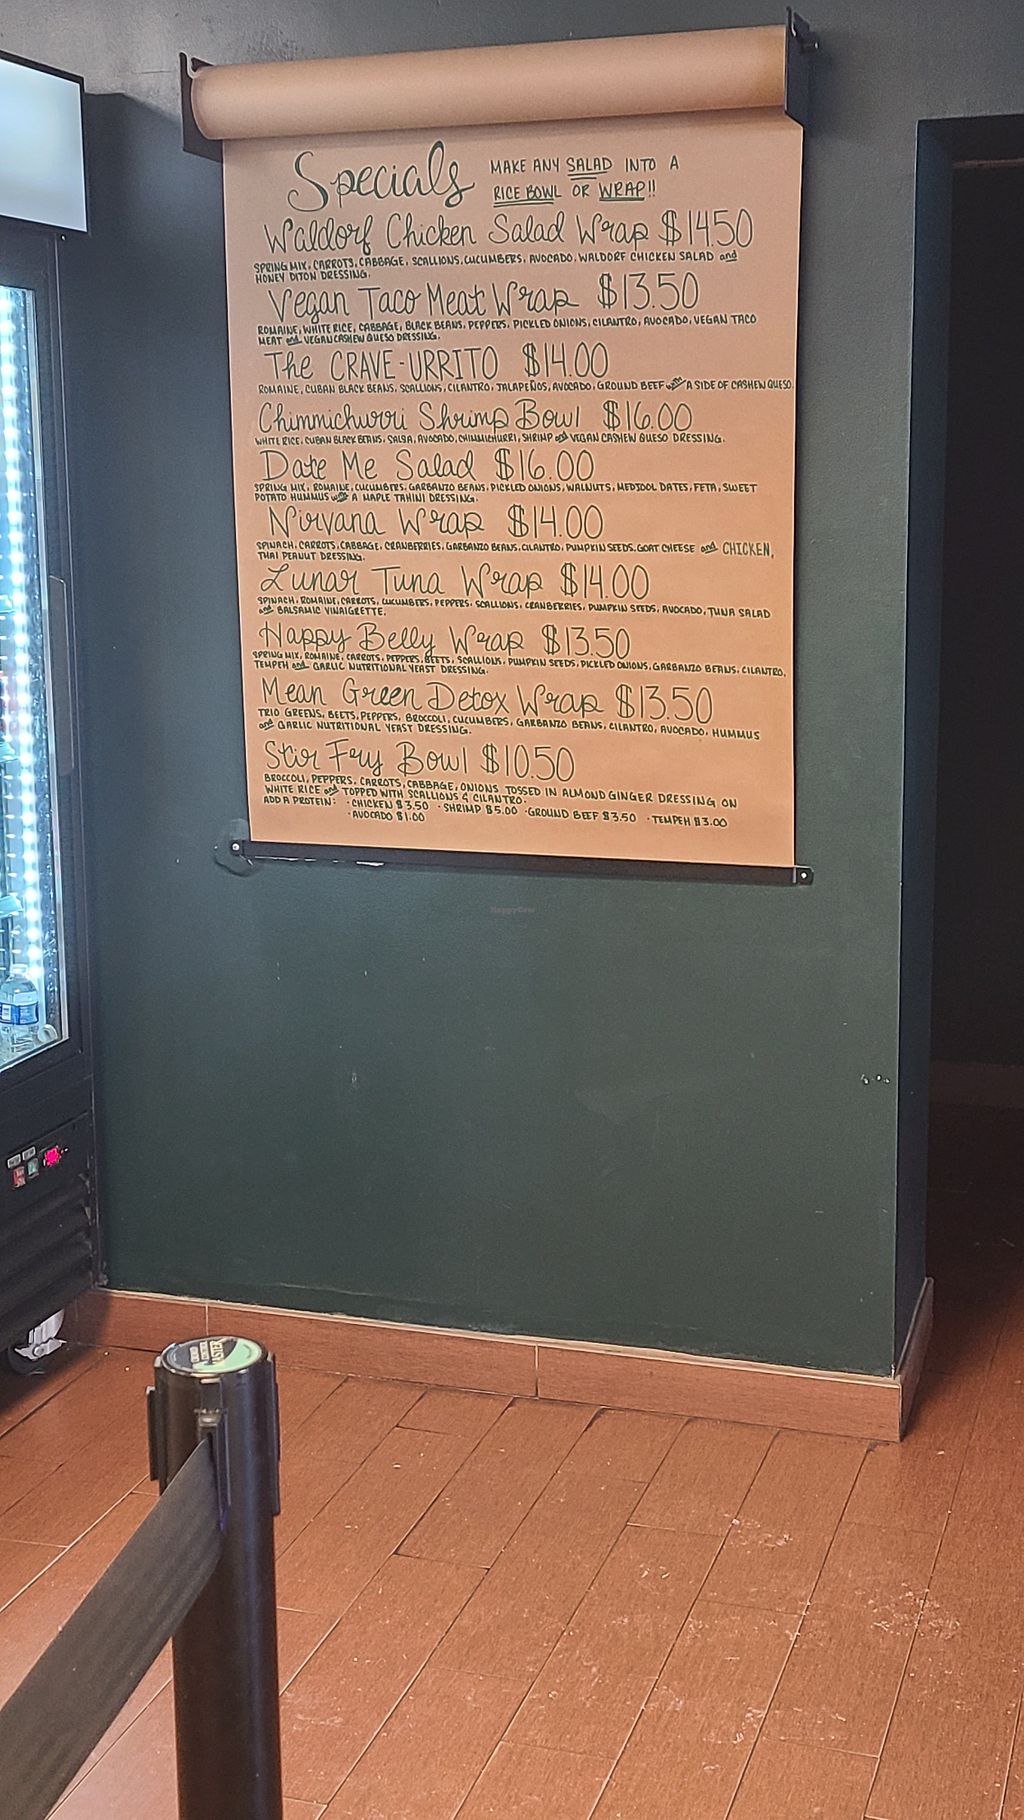 Specials MAKE ANY SALAD INTO A
RICE BOWL OR WRAP!!
Waldorf Chicken Salad Wrap $14.50
SPRING MIX, CARROTS, CABBAGE, SCALLIONS, CUCUMBERS, AVOCADO, WALDORF CHICKEN SALAD and
HONEY DIJON DRESSING.
Vegan Taco Meat Wrap $13.50
ROMAINE, WHITE RICE, CABBAGE, BLACK BEANS, PEPPERS, PICKLED ONIONS, CILANTRO, AVOCADO, VEGAN TACO
MEAT and VEGAN CASHEW QUESO DRESSING.
The CRAVE-URRITO $14.00
ROMAINE, CUBAN BLACK BEANS, SCALLIONS, CILANTRO, JALAPEÑOS, AVOCADO, GROUND BEEF with A SIDE OF CASHEW QUESO.
Chimmichurri Shrimp Bowl $16.00
WHITE RICE, CUBAN BLACK BEANS, SALSA, AVOCADO, CHIMMICHURRI, SHRIMP and VEGAN CASHEW QUESO DRESSING.
Date Me Salad $16.00
SPRING MIX, ROMAINE, CUCUMBERS, GARBANZO BEANS, PICKLED ONIONS, WALNUTS, MEDJOOL DATES, FETA, SWEET
POTATO HUMMUS with A MAPLE TAHINI DRESSING.
Nirvana Wrap $14.00
SPINACH, CARROTS, CABBAGE, CRANBERRIES, GARBANZO BEANS, CILANTRO, PUMPKIN SEEDS, GOAT CHEESE and CHICKEN,
THAI PEANUT DRESSING.
Lunar Tuna Wrap $14.00
SPINACH, ROMAINE, CARROTS, CUCUMBERS, PEPPERS, SCALLIONS, CRANBERRIES, PUMPKIN SEEDS, AVOCADO, TUNA SALAD
and BALSAMIC VINAIGRETTE.
Happy Belly Wrap $13.50
SPRING MIX, ROMAINE, CARROTS, PEPPERS, BEETS, SCALLIONS, PUMPKIN SEEDS, PICKLED ONIONS, GARBANZO BEANS, CILANTRO,
TEMPEH and GARLIC NUTRITIONAL YEAST DRESSING.
Mean Green Detox Wrap $13.50
TRIO GREENS, BEETS, PEPPERS, BROCCOLI, CUCUMBERS, GARBANZO BEANS, CILANTRO, AVOCADO, HUMMUS
and GARLIC NUTRITIONAL YEAST DRESSING.
Stir Fry Bowl $10.50
BROCCOLI, PEPPERS, CARROTS, CABBAGE, ONIONS TOSSED IN ALMOND GINGER DRESSING ON
WHITE RICE and TOPPED WITH SCALLIONS & CILANTRO.
ADD A PROTEIN: · CHICKEN $3.50 · SHRIMP $5.00 · GROUND BEEF $3.50 · TEMPEH $3.00
· AVOCADO $1.00
HappyCow